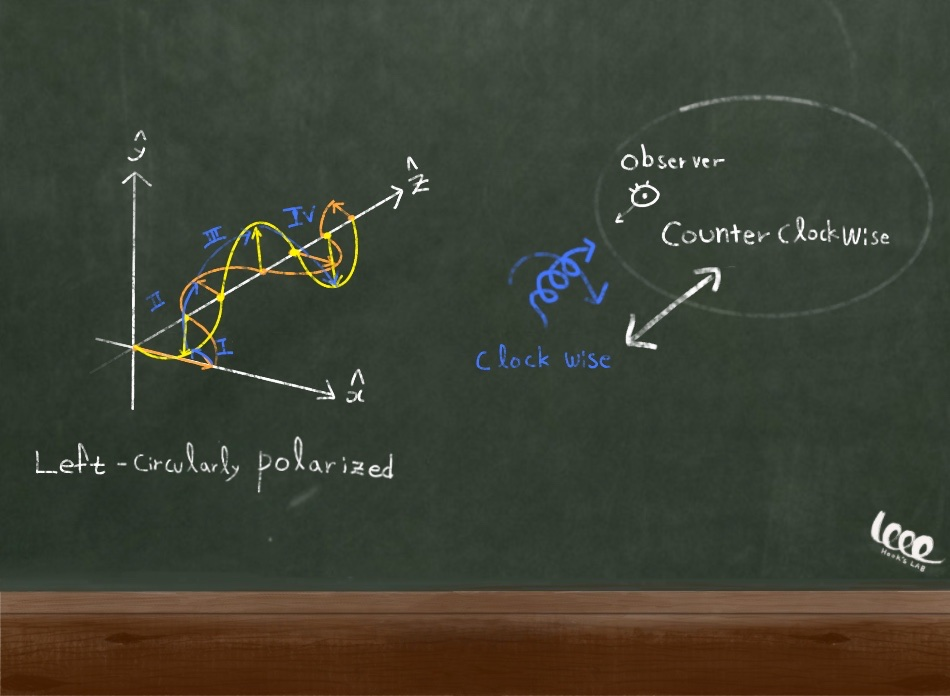 ŷ
ẑ
I
II
III
IV
x̂
Left - Circularly polarized
Observer
Counter Clockwise
Clock wise
leee
Hook's LAB